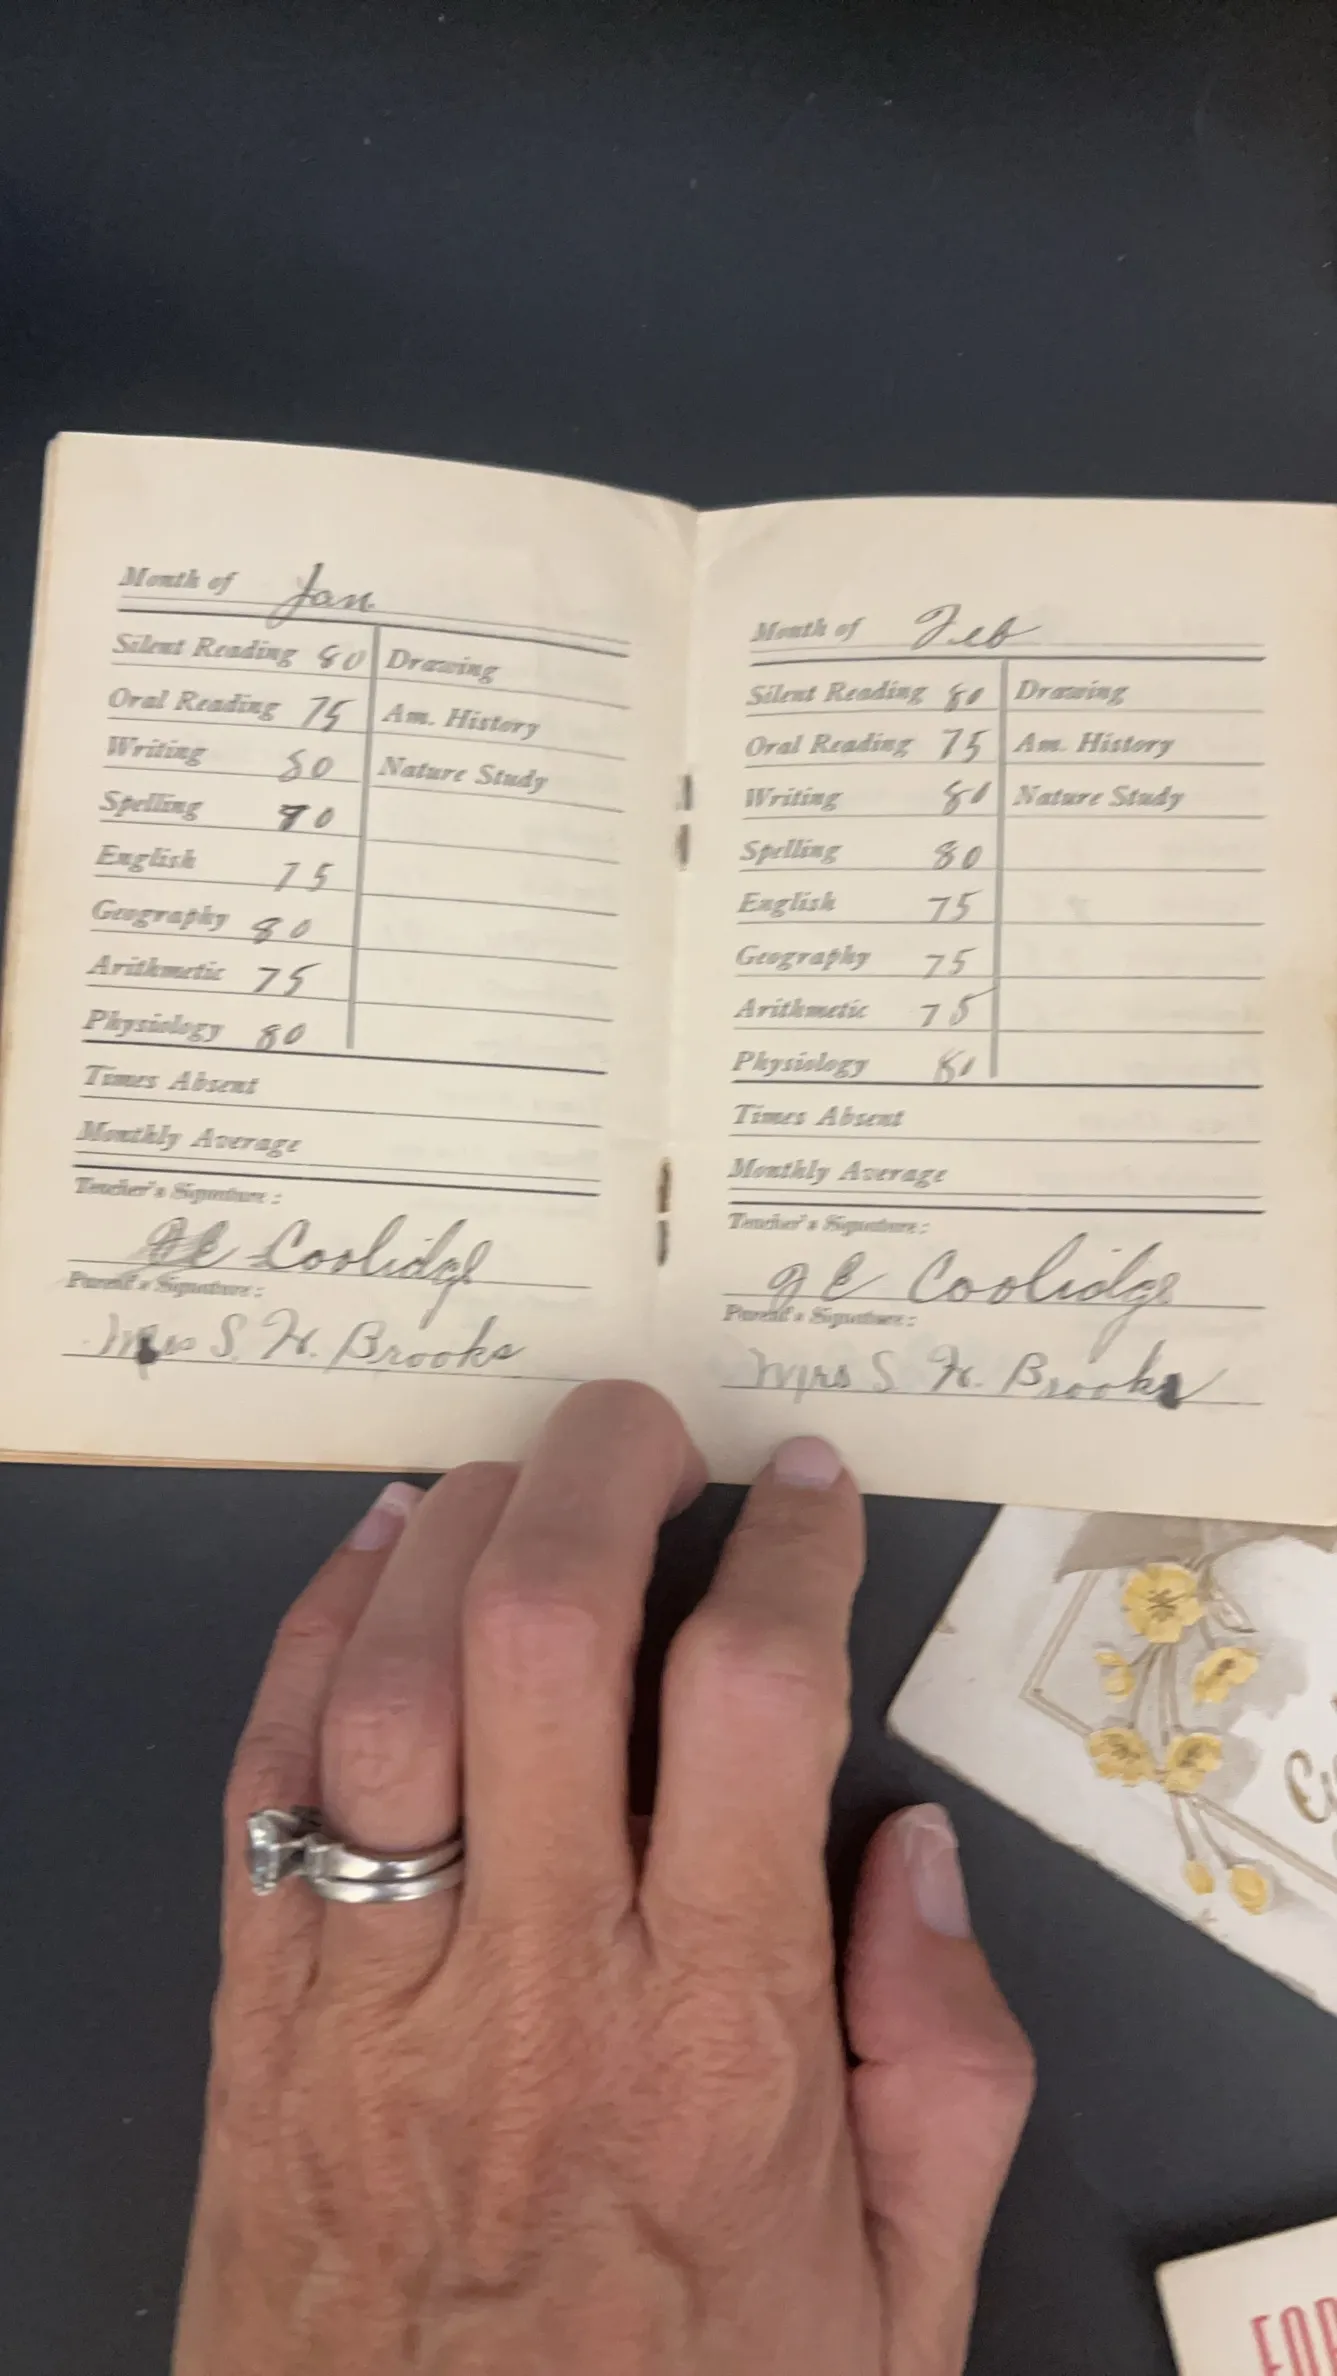 Month of Jan.
Silent Reading 80 Drawing
Oral Reading 75 Am. History
Writing 80 Nature Study
Spelling 70
English 75
Geography 80
Arithmetic 75
Physiology 80
Times Absent
Monthly Average
Teacher's Signature:
Coolidge
Parent's Signature:
Mrs S. H. Brooks
Month of Feb
Silent Reading 80 Drawing
Oral Reading 75 Am. History
Writing 80 Nature Study
Spelling 80
English 75
Geography 75
Arithmetic 75
Physiology 80
Times Absent
Monthly Average
Teacher's Signature:
Coolidge
Parent's Signature:
Mrs S. H. Brooks